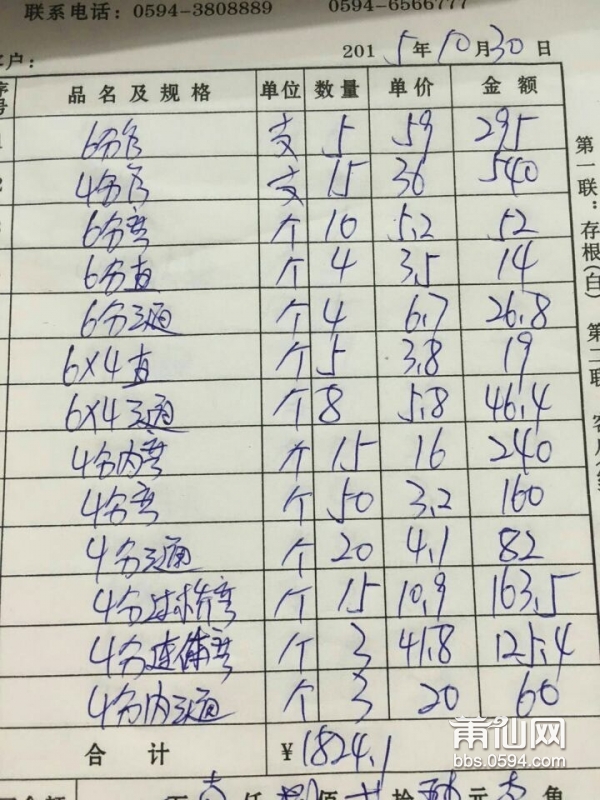 联系电话：0594-3808889 0594-6566777
客户： 2015年10月30日
序号 品名及规格 单位 数量 单价 金额
6分管 支 5 59 295
4分管 支 15 36 540
6分弯 个 10 5.2 52
6分直 个 4 3.5 14
6分三通 个 4 6.7 26.8
6X4直 个 5 3.8 19
6X4三通 个 8 5.8 46.4
4分内弯 个 15 16 240
4分弯 个 50 3.2 160
4分三通 个 20 4.1 82
4分过桥弯 个 15 10.9 163.5
4分连体弯 个 3 41.8 125.4
4分内三通 个 3 20 60
合计 ¥1824.1
第一联：存根(白) 第二联
莆仙网
bbs.0594.com